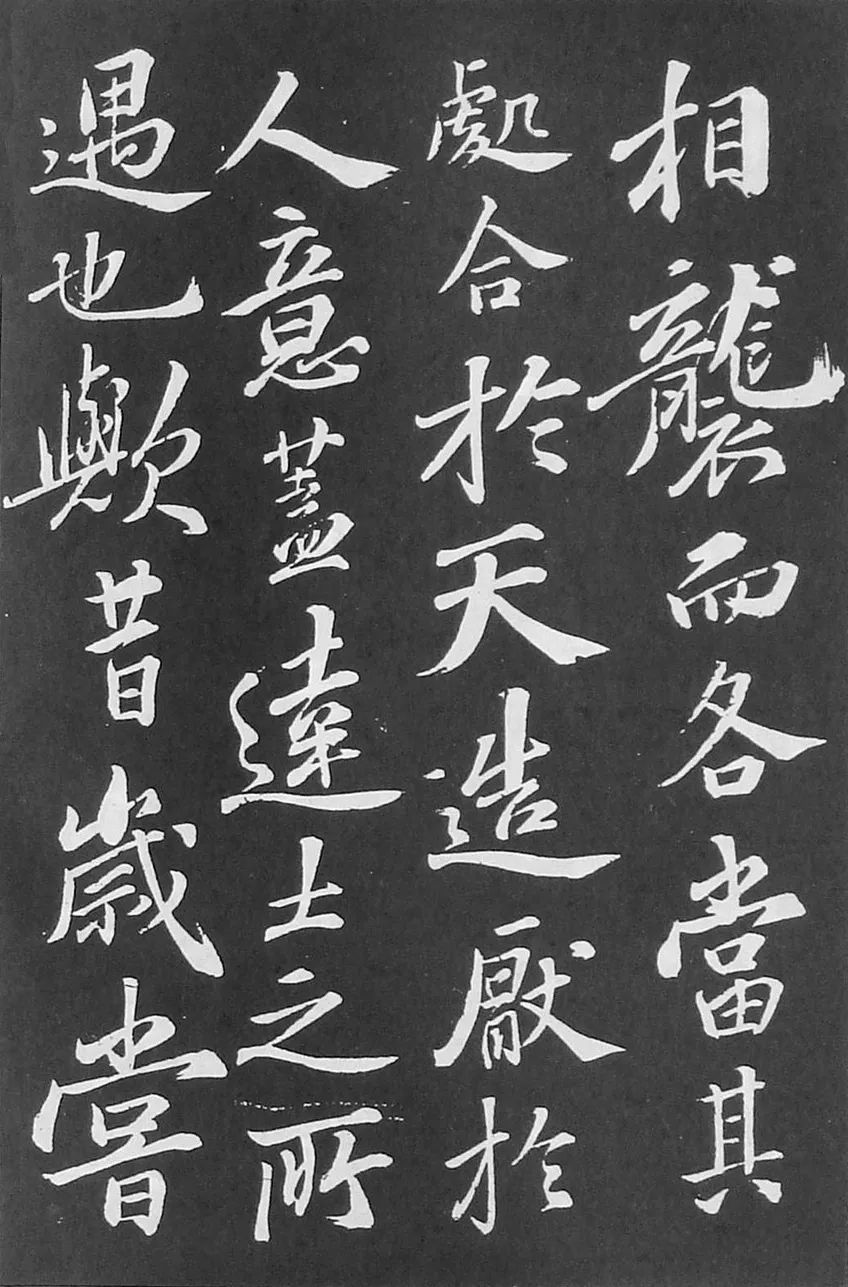 相龔而各當其
處合於天造厭於
人意蓋達士之所
遇也歟昔歲嘗